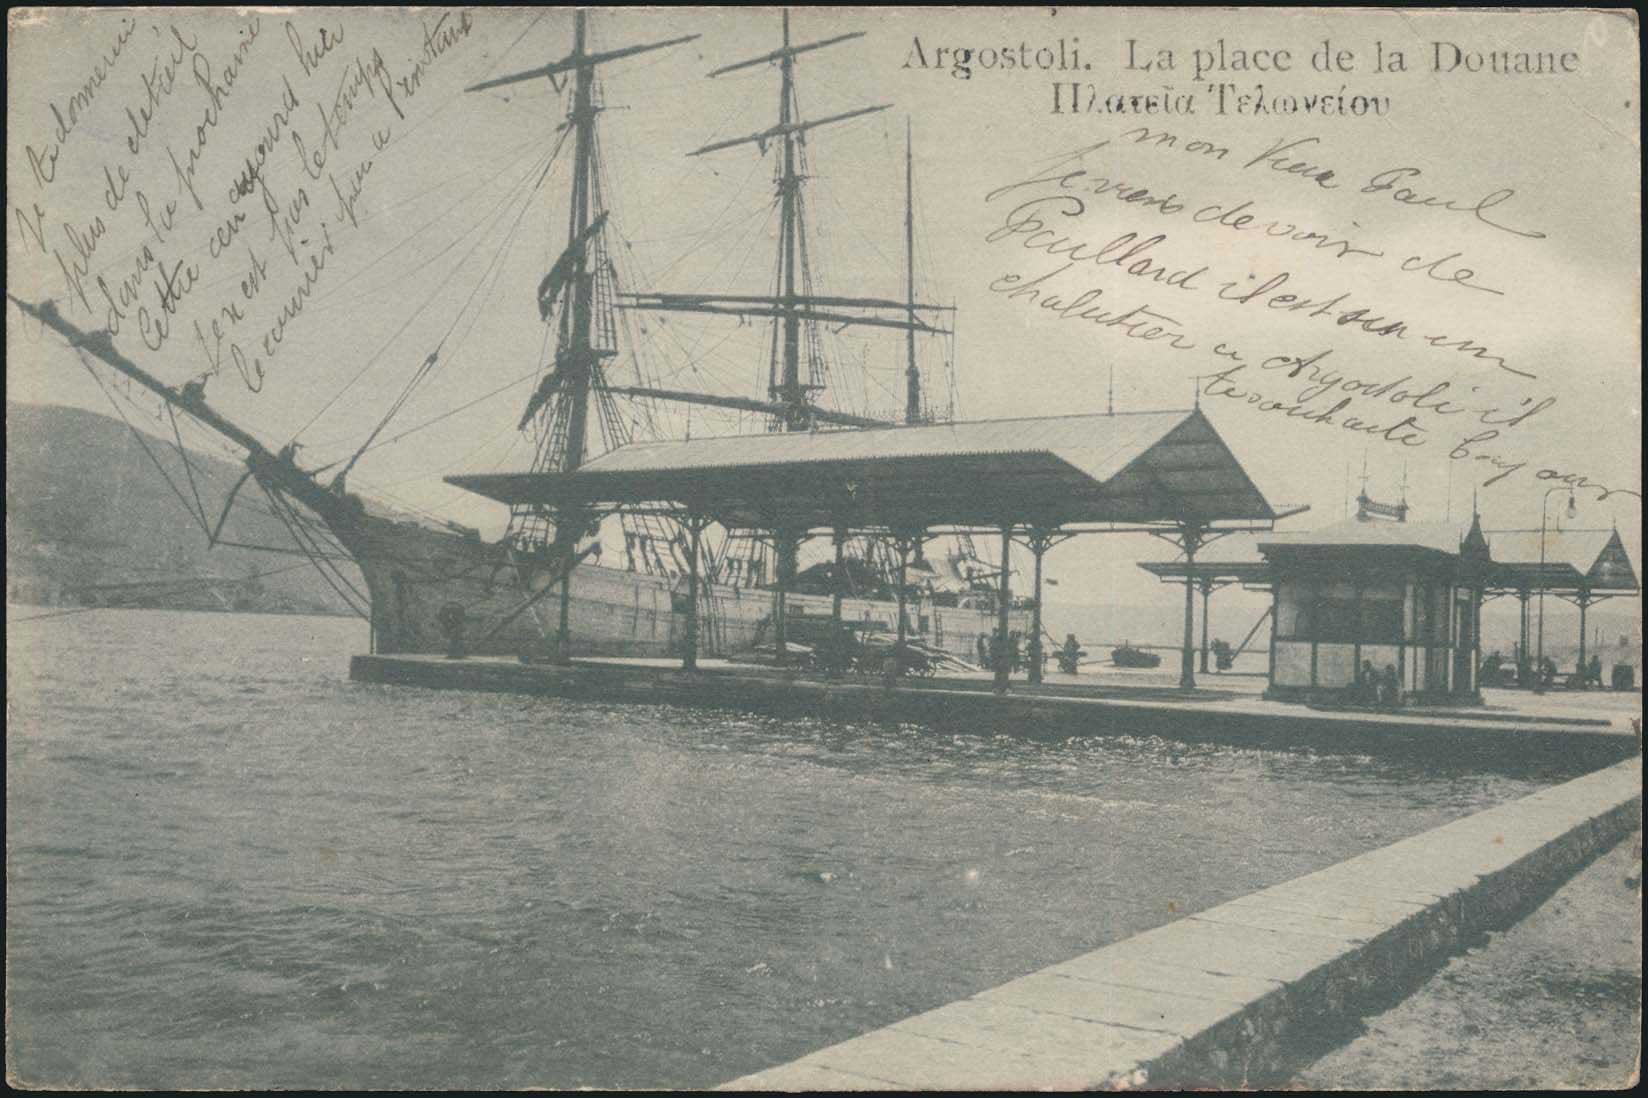 Argostoli. La place de la Douane
Πλατεῖα Τελωνείου
mon Vieux Paul
je viens de voir de
Paullard il est sur un
chalutier a Argostoli il
te souhaite bonjour
Je te donnerai
plus de detail
dans la prochaine
lettre car aujourd hui
je n est pas le temps
le courrier